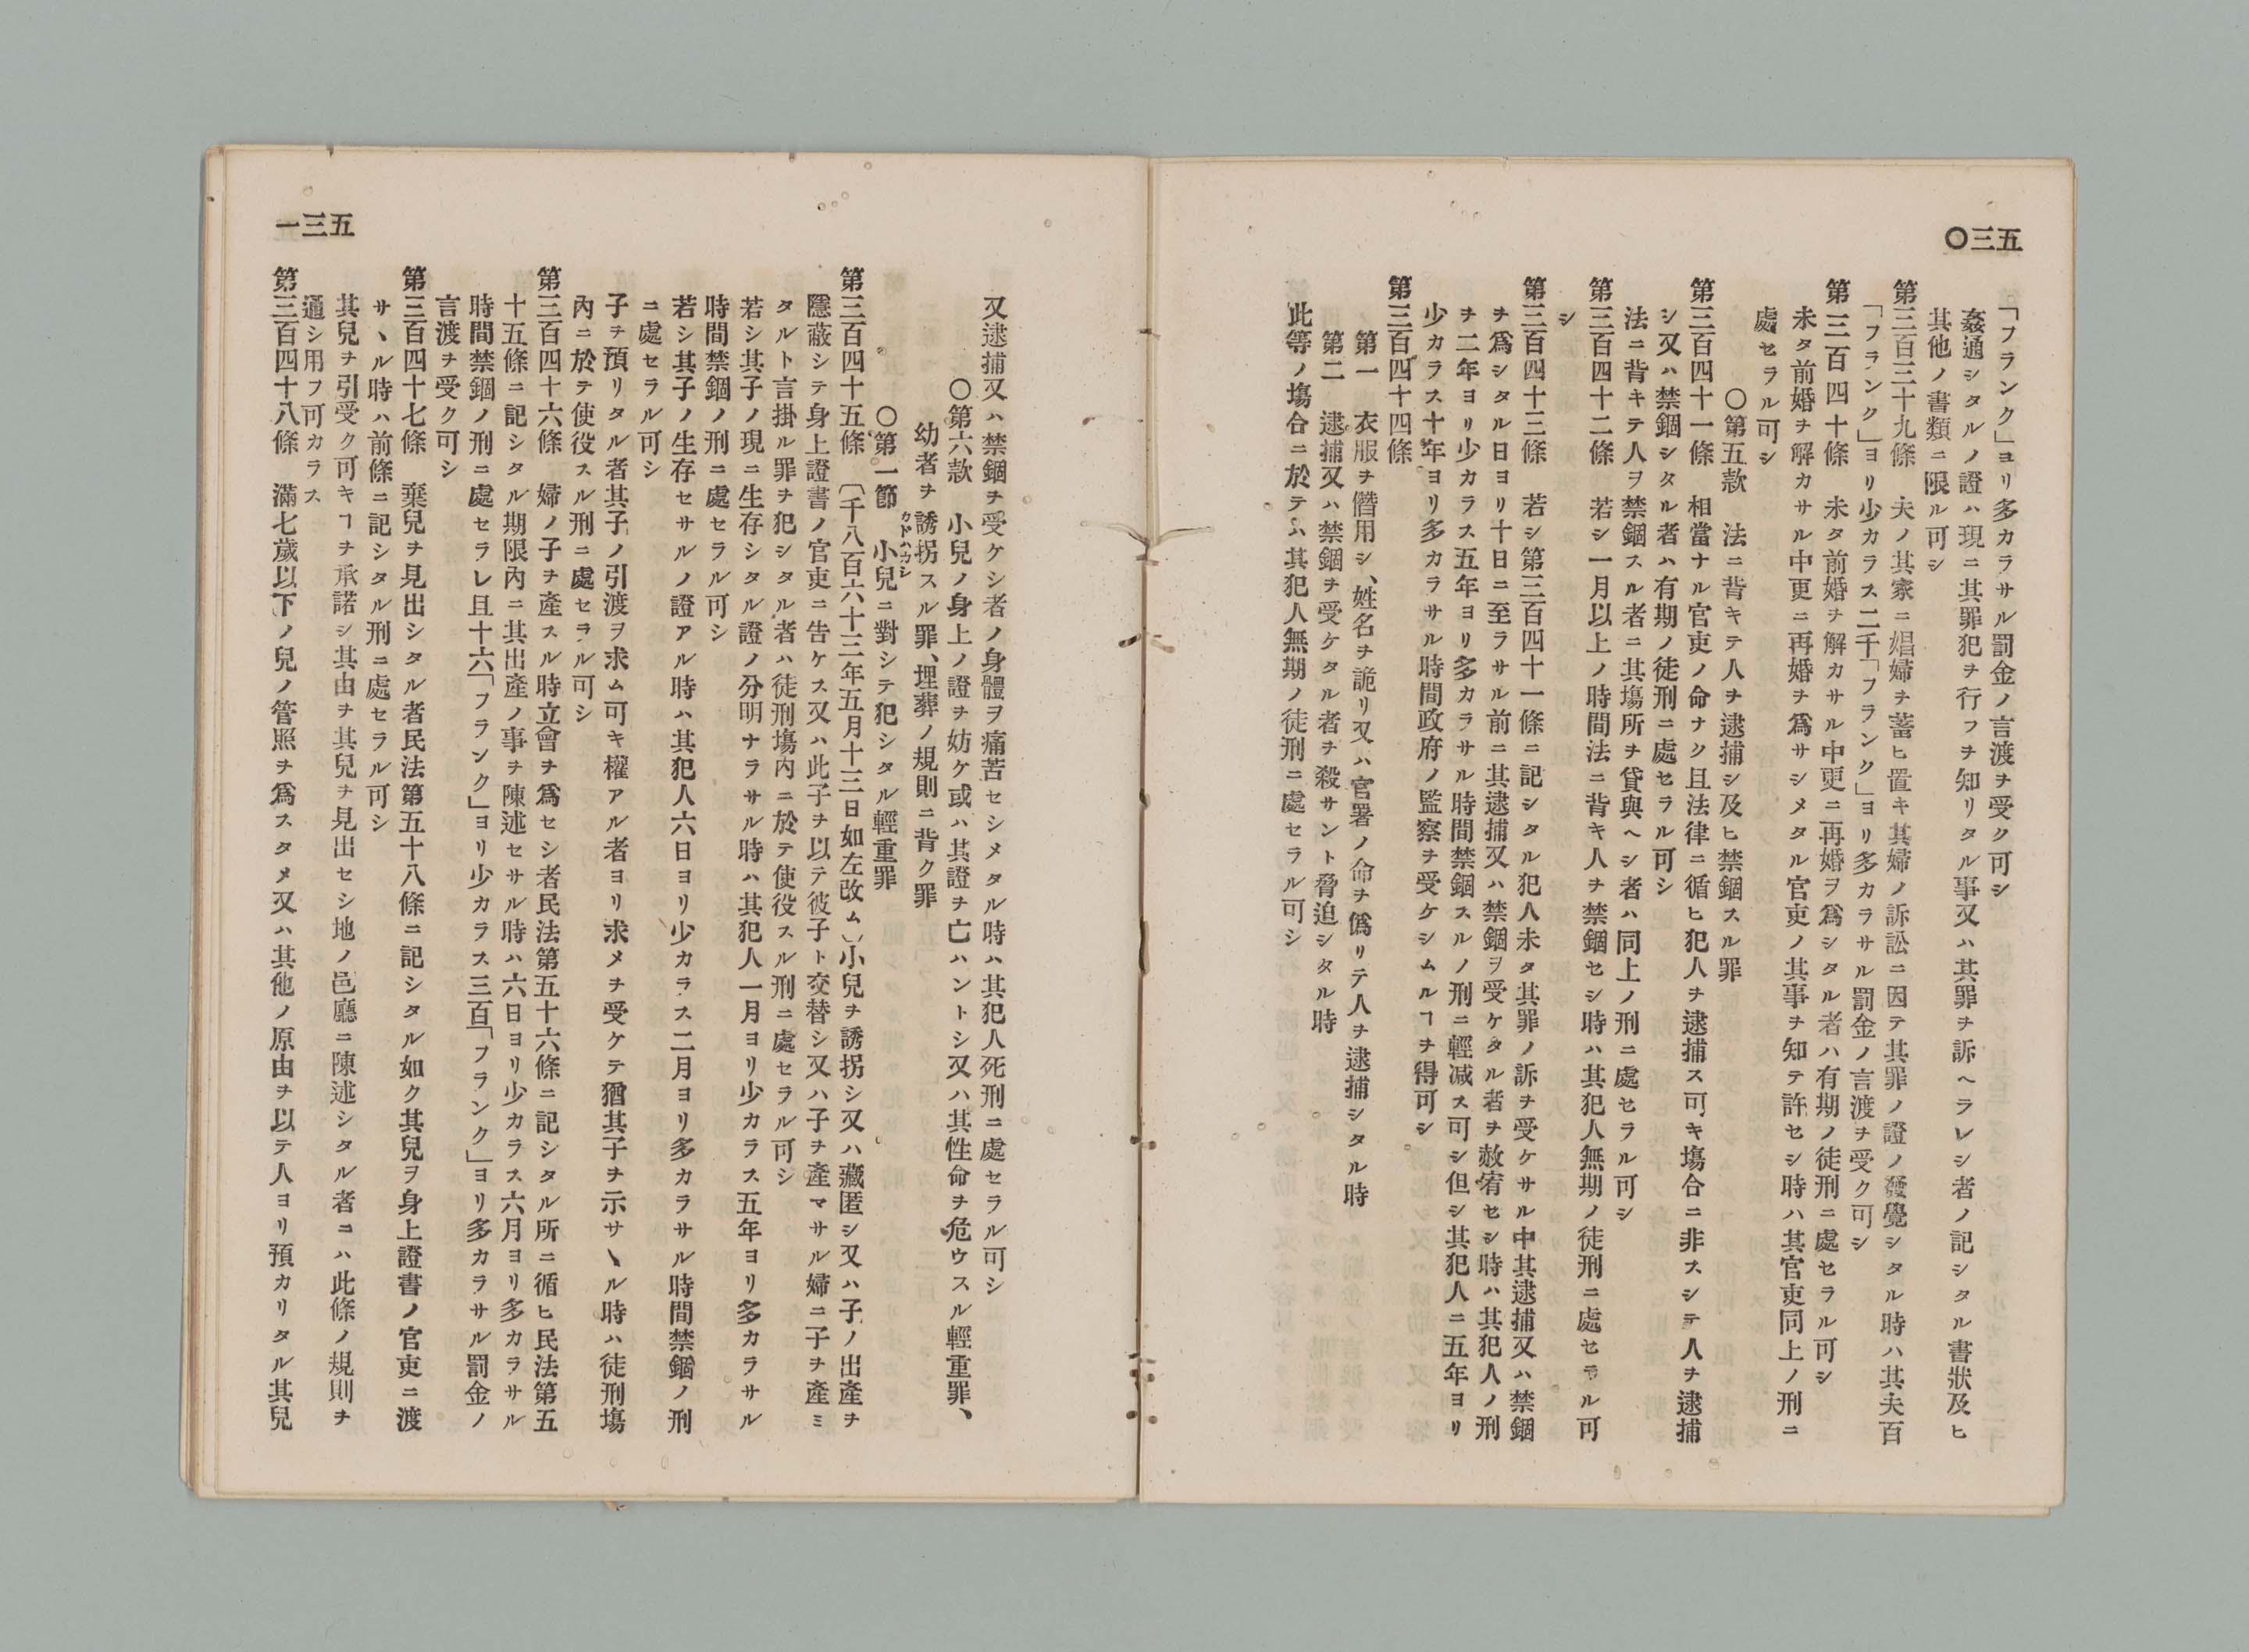 五三〇
「フランク」ヨリ多カラサル罰金ノ言渡ヲ受ク可シ
姦通シタルノ證ハ現ニ其罪犯ヲ行フヲ知リタル事又ハ其罪ヲ訴ヘラレシ者ノ記シタル書狀及ヒ
其他ノ書類ニ限ル可シ
第三百三十九條　夫ノ其家ニ娼婦ヲ蓄ヒ置キ其婦ノ訴訟ニ因テ其罪ノ證ノ發覺シタル時ハ其夫百
「フランク」ヨリ少カラス二千「フランク」ヨリ多カラサル罰金ノ言渡ヲ受ク可シ
第三百四十條　未タ前婚ヲ解カサル中更ニ再婚ヲ爲シタル者ハ有期ノ徒刑ニ處セラル可シ
未タ前婚ヲ解カサル中更ニ再婚ヲ爲サシメタル官吏ノ其事ヲ知テ許セシ時ハ其官吏同上ノ刑ニ
處セラル可シ
〇第五款　法ニ背キテ人ヲ逮捕シ及ヒ禁錮スル罪
第三百四十一條　相當ナル官吏ノ命ナク且法律ニ循ヒ犯人ヲ逮捕ス可キ塲合ニ非スシテ人ヲ逮捕
シ又ハ禁錮シタル者ハ有期ノ徒刑ニ處セラル可シ
法ニ背キテ人ヲ禁錮スル者ニ其塲所ヲ貸與ヘシ者ハ同上ノ刑ニ處セラル可シ
第三百四十二條　若シ一月以上ノ時間法ニ背キ人ヲ禁錮セシ時ハ其犯人無期ノ徒刑ニ處セラル可
シ
第三百四十三條　若シ第三百四十一條ニ記シタル犯人未タ其罪ノ訴ヲ受ケサル中其逮捕又ハ禁錮
ヲ爲シタル日ヨリ十日ニ至ラサル前ニ其逮捕又ハ禁錮ヲ受ケタル者ヲ赦宥セシ時ハ其犯人ノ刑
ヲ二年ヨリ少カラス五年ヨリ多カラサル時間禁錮スルノ刑ニ輕減ス可シ但シ其犯人ニ五年ヨリ
少カラス十年ヨリ多カラサル時間政府ノ監察ヲ受ケシムルヿヲ得可シ
第三百四十四條
第一　衣服ヲ僭用シ、姓名ヲ詭リ又ハ官署ノ命ヲ僞リテ人ヲ逮捕シタル時
第二　逮捕又ハ禁錮ヲ受ケタル者ヲ殺サント脅迫シタル時
此等ノ塲合ニ於テハ其犯人無期ノ徒刑ニ處セラル可シ
五三一
又逮捕又ハ禁錮ヲ受ケシ者ノ身體ヲ痛苦セシメタル時ハ其犯人死刑ニ處セラル可シ
〇第六款　小兒ノ身上ノ證ヲ妨ケ或ハ其證ヲ亡ハントシ又ハ其性命ヲ危ウスル輕重罪、
幼者ヲ誘拐スル罪、埋葬ノ規則ニ背ク罪
カドハカシ
〇第一節　小兒ニ對シテ犯シタル輕重罪
第三百四十五條　〔千八百六十三年五月十三日如左改ム〕小兒ヲ誘拐シ又ハ藏匿シ又ハ子ノ出產ヲ
隱蔽シテ身上證書ノ官吏ニ吿ケス又ハ此子ヲ以テ彼子ト交替シ又ハ子ヲ產マサル婦ニ子ヲ產ミ
タルト言掛ル罪ヲ犯シタル者ハ徒刑塲內ニ於テ使役スル刑ニ處セラル可シ
若シ其子ノ現ニ生存シタル證ノ分明ナラサル時ハ其犯人一月ヨリ少カラス五年ヨリ多カラサル
時間禁錮ノ刑ニ處セラル可シ
若シ其子ノ生存セサルノ證アル時ハ其犯人六日ヨリ少カラス二月ヨリ多カラサル時間禁錮ノ刑
ニ處セラル可シ
子ヲ預リタル者其子ノ引渡ヲ求ム可キ權アル者ヨリ求メヲ受ケテ猶其子ヲ示サヽル時ハ徒刑塲
內ニ於テ使役スル刑ニ處セラル可シ
第三百四十六條　婦ノ子ヲ產スル時立會ヲ爲セシ者民法第五十六條ニ記シタル所ニ循ヒ民法第五
十五條ニ記シタル期限內ニ其出產ノ事ヲ陳述セサル時ハ六日ヨリ少カラス六月ヨリ多カラサル
時間禁錮ノ刑ニ處セラレ且十六「フランク」ヨリ少カラス三百「フランク」ヨリ多カラサル罰金ノ
言渡ヲ受ク可シ
第三百四十七條　棄兒ヲ見出シタル者民法第五十八條ニ記シタル如ク其兒ヲ身上證書ノ官吏ニ渡
サヽル時ハ前條ニ記シタル刑ニ處セラル可シ
其兒ヲ引受ク可キヿヲ承諾シ其由ヲ其兒ヲ見出セシ地ノ邑廳ニ陳述シタル者ニハ此條ノ規則ヲ
通シ用フ可カラス
第三百四十八條　滿七歲以下ノ兒ノ管照ヲ爲スタメ又ハ其他ノ原由ヲ以テ人ヨリ預カリタル其兒